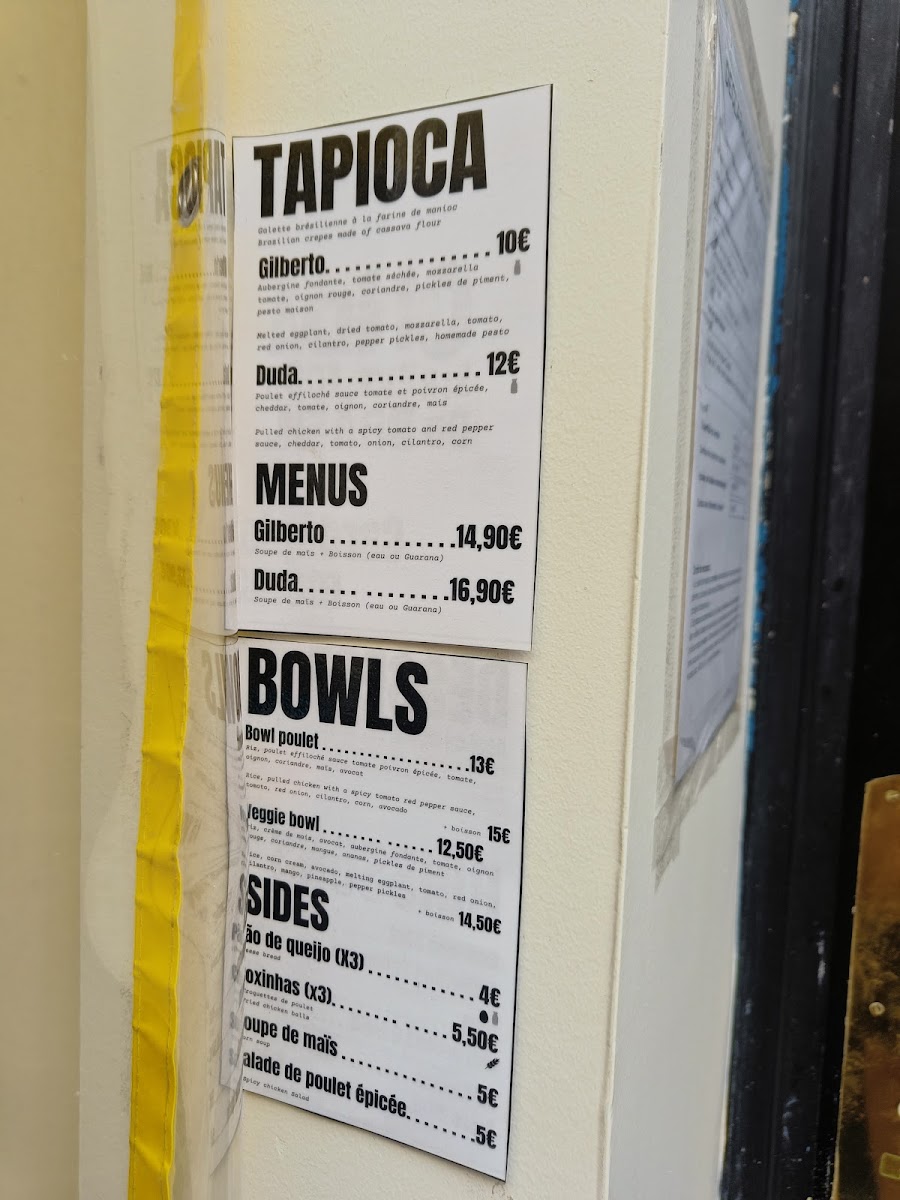 TAPIOCA
Galette brésilienne à la farine de manioc
Brazilian crepes made of cassava flour
Gilberto. . . . . . . . . . . . . . . . 10€
Aubergine fondante, tomate séchée, mozzarella
tomate, oignon rouge, coriandre, pickles de piment,
pesto maison
Melted eggplant, dried tomato, mozzarella, tomato,
red onion, cilantro, pepper pickles, homemade pesto
Duda. . . . . . . . . . . . . . . . . . 12€
Poulet effiloché sauce tomate et poivron épicée,
cheddar, tomate, oignon, coriandre, maïs
Pulled chicken with a spicy tomato and red pepper
sauce, cheddar, tomato, onion, cilantro, corn
MENUS
Gilberto . . . . . . . . . . . .14,90€
Soupe de maïs + Boisson (eau ou Guarana)
Duda. . . . . . . . . . . . . .16,90€
Soupe de maïs + Boisson (eau ou Guarana)
BOWLS
Bowl poulet . . . . . . . . . . . . . . . . . .13€
Riz, poulet effiloché sauce tomate poivron épicée, tomate,
oignon, coriandre, maïs, avocat
Rice, pulled chicken with a spicy tomato red pepper sauce,
tomato, red onion, cilantro, corn, avocado
+ boisson 15€
Veggie bowl . . . . . . . . . . . . . . 12,50€
riz, crème de maïs, avocat, aubergine fondante, tomate, oignon
rouge, coriandre, mangue, ananas, pickles de piment
ice, corn cream, avocado, melting eggplant, tomato, red onion,
cilantro, mango, pineapple, pepper pickles
+ boisson 14,50€
SIDES
ão de queijo (X3) . . . . . . . . . . . . 4€
eese bread
oxinhas (x3). . . . . . . . . . . . 5,50€
roquettes de poulet
fried chicken balls
oupe de maïs . . . . . . . . . . . . . . . 5€
orn soup
alade de poulet épicée. . . . . . . . .5€
Spicy chicken Salad